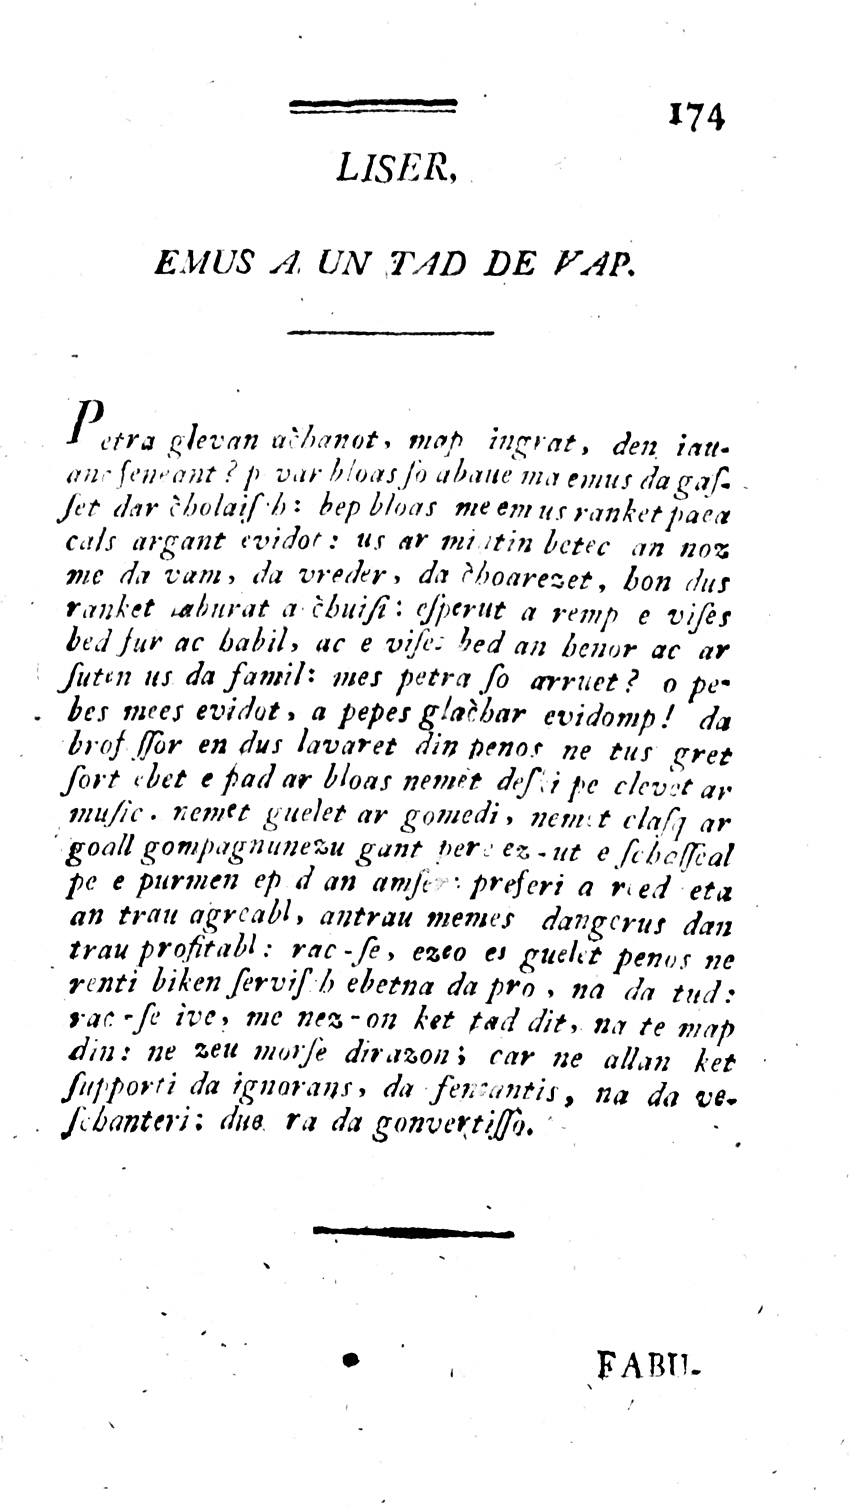 174
LISER,
EMUS A UN TAD DE VAP.
Petra glevan ac̀hanot, map ingrat, den iau-
anc feneant? p var bloas ſo abaue ma emus da gaſ-
ſet dar c̀holaiſ h: bep bloas me em us ranket paea
cals argant evidot: us ar mintin betec an noz
me da vam, da vreder, da c̀hoarezet, hon dus
ranket laburat a c̀huiſi: eſperut a remp e viſes
bed ſur ac habil, ac e viſes bed an henor ac ar
ſuten us da famil: mes petra ſo arruet? o pe-
bes mees evidot, a pepes glac̀har evidomp! da
brof ſſor en dus lavaret din penos ne tus gret
ſort ebet e pad ar bloas nemèt deſ i pe clevet ar
muſic. nemet guelet ar gomedi, nemet claſq ar
goall gompagnunezu gant pere ez-ut e
pe e purmen ep d an amſer: preferi a reed eta
an trau agreabl, antrau memes dangerus dan
trau profitabl: rac-ſe, ezeo es guelet penos ne
renti biken ſerviſ h ebetna da pro, na da tud:
rac-ſe ive, me nez-on ket tad dit, na te map
din: ne zeu morſe dirazon; car ne allan ket
ſupporti da ignorans, da feneantis, na da ve-
ſchanteri; due ra da gonvertiſſo.
FABU-